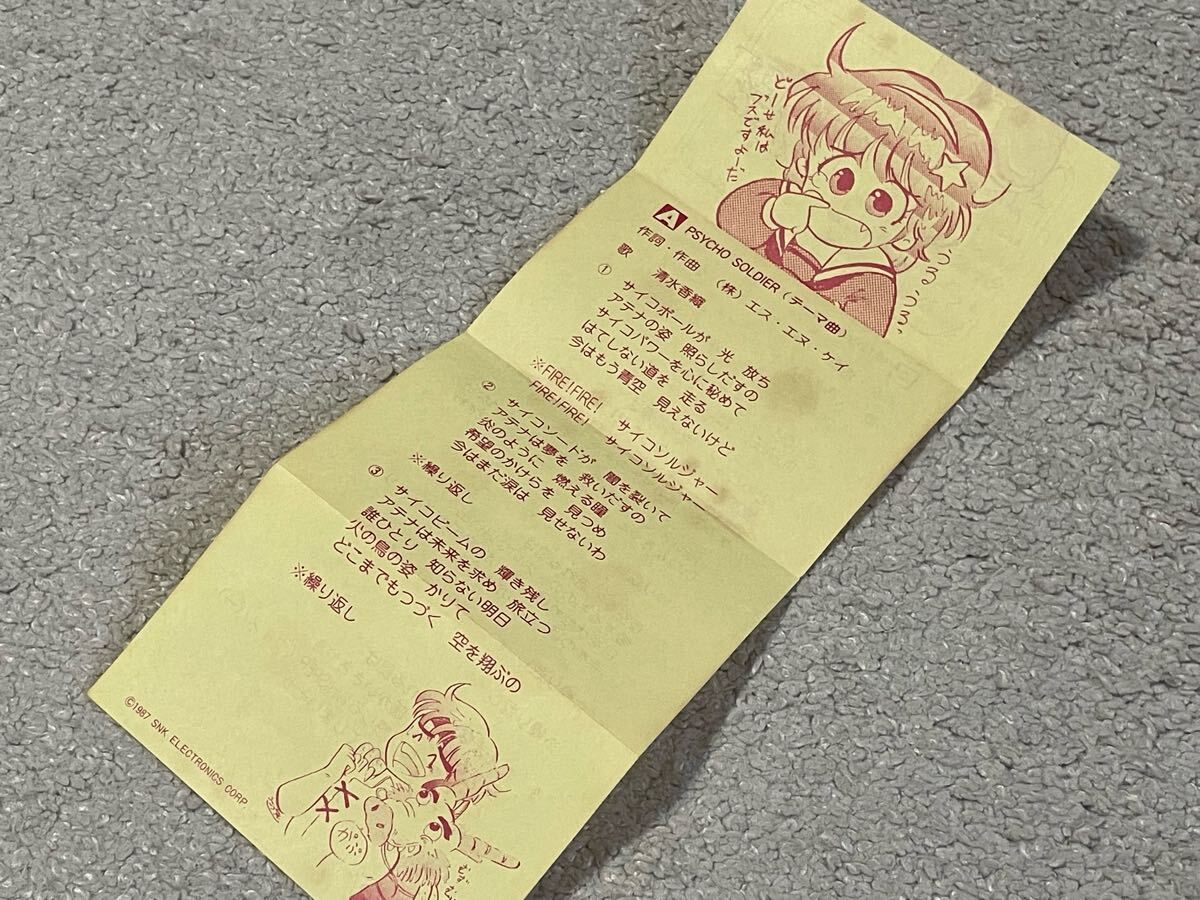 どーせ私は
ブスですよーだ
うるうる、
A PSYCHO SOLDIER（テーマ曲）
作詞・作曲 （株）エス・エヌ・ケイ
歌 清水香織
① サイコボールが 光 放ち
アテナの姿 照らしだすの
サイコパワーを心に秘めて
はてしない道を 走る
今はもう青空 見えないけど
※FIRE!FIRE! サイコソルジャー
FIRE!FIRE! サイコソルジャー
② サイコソードが 闇を裂いて
アテナは夢を 救いだすの
炎のように 燃える瞳
希望のかけらを 見つめ
今はまだ涙は 見せないわ
※繰り返し
③ サイコビームの 輝き残し
アテナは未来を求め 旅立つ
誰ひとり 知らない明日
火の鳥の姿 かりて
どこまでもつづく 空を翔ぶの
※繰り返し
がぶ
©1987 SNK ELECTRONICS CORP